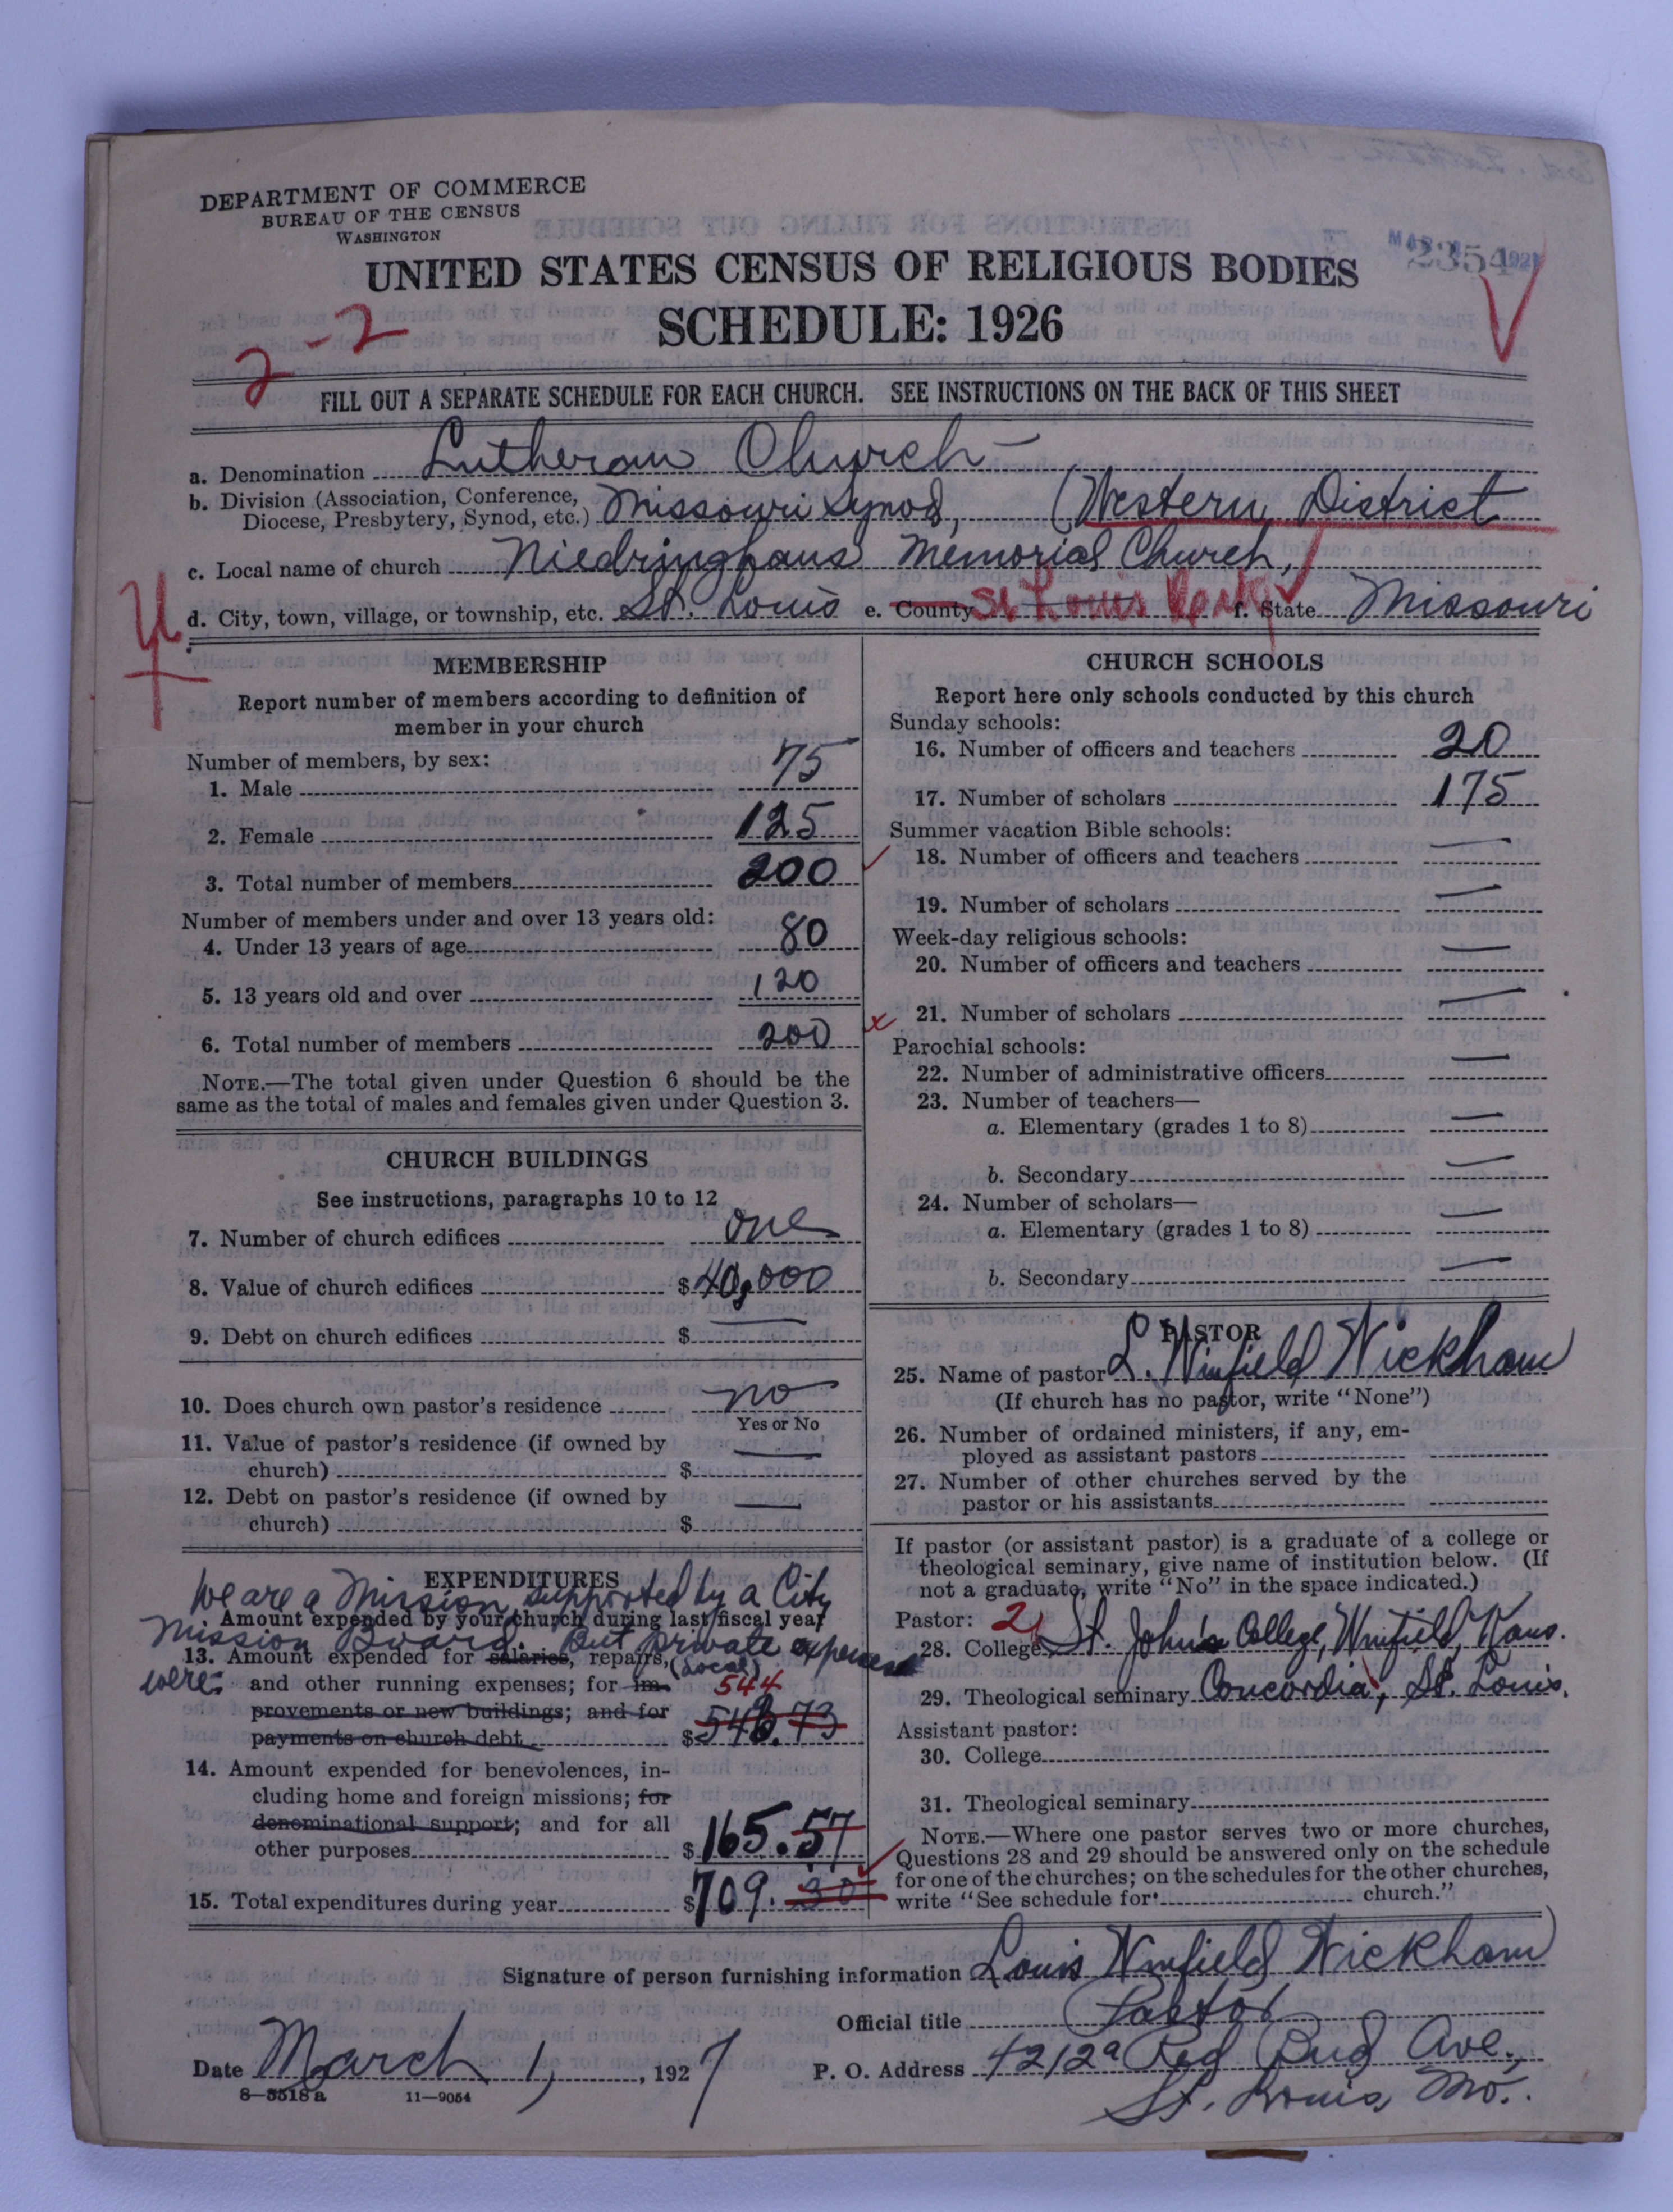 DEPARTMENT OF COMMERCE
BUREAU OF THE CENSUS
WASHINGTON
2354
UNITED STATES CENSUS OF RELIGIOUS BODIES
SCHEDULE: 1926
2-2
FILL OUT A SEPARATE SCHEDULE FOR EACH CHURCH. SEE INSTRUCTIONS ON THE BACK OF THIS SHEET
a. Denomination Lutheran Church
b. Division (Association, Conference,
Diocese, Presbytery, Synod, etc.) Missouri Synod, (Western District
c. Local name of church Niedringhaus Memorial Church,
d. City, town, village, or township, etc. St. Louis e. County St Louis City f. State Missouri
MEMBERSHIP
Report number of members according to definition of
member in your church
Number of members, by sex:
1. Male 75
2. Female 125
3. Total number of members 200
Number of members under and over 13 years old:
4. Under 13 years of age 80
5. 13 years old and over 120
6. Total number of members 200
NOTE.—The total given under Question 6 should be the
same as the total of males and females given under Question 3.
CHURCH BUILDINGS
See instructions, paragraphs 10 to 12
7. Number of church edifices one
8. Value of church edifices $40,000
9. Debt on church edifices $ —
10. Does church own pastor's residence no
Yes or No
11. Value of pastor's residence (if owned by
church) $ —
12. Debt on pastor's residence (if owned by
church) $ —
EXPENDITURES
We are a Mission supported by a City
Amount expended by your church during last fiscal year
Mission Board. But private expenses
13. Amount expended for salaries, repairs, (local)
were: and other running expenses; for im- 544
provements or new buildings; and for
payments on church debt $543.73
14. Amount expended for benevolences, in-
cluding home and foreign missions; for
denominational support; and for all
other purposes $165.57
15. Total expenditures during year $709.30
CHURCH SCHOOLS
Report here only schools conducted by this church
Sunday schools:
16. Number of officers and teachers 20
17. Number of scholars 175
Summer vacation Bible schools:
18. Number of officers and teachers —
19. Number of scholars —
Week-day religious schools:
20. Number of officers and teachers —
21. Number of scholars —
Parochial schools:
22. Number of administrative officers —
23. Number of teachers—
a. Elementary (grades 1 to 8) —
b. Secondary —
24. Number of scholars—
a. Elementary (grades 1 to 8) —
b. Secondary —
PASTOR
25. Name of pastor L. Winfield Wickham
(If church has no pastor, write "None")
26. Number of ordained ministers, if any, em-
ployed as assistant pastors
27. Number of other churches served by the
pastor or his assistants
If pastor (or assistant pastor) is a graduate of a college or
theological seminary, give name of institution below. (If
not a graduate, write "No" in the space indicated.)
Pastor: 2
28. College St. John's College, Winfield, Kans.
29. Theological seminary Concordia, St. Louis.
Assistant pastor:
30. College
31. Theological seminary
NOTE.—Where one pastor serves two or more churches,
Questions 28 and 29 should be answered only on the schedule
for one of the churches; on the schedules for the other churches,
write "See schedule for church."
Signature of person furnishing information Louis Winfield Wickham
Official title Pastor
Date March 1, 1927 P. O. Address 4212a Red Bud Ave.,
8—5518 a 11—9054 St. Louis, Mo.